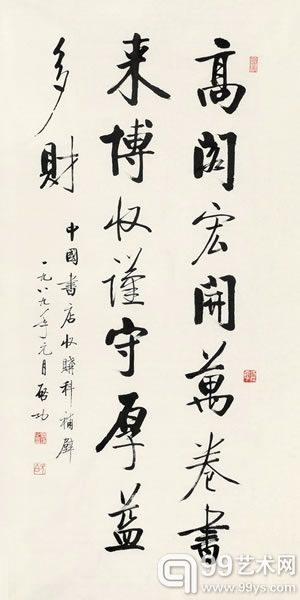 高閣宏開萬卷書
来博收謹守厚益
多財
中國書店收購科補壁
一九八九年元月 啓功
99艺术网
www.99ys.com